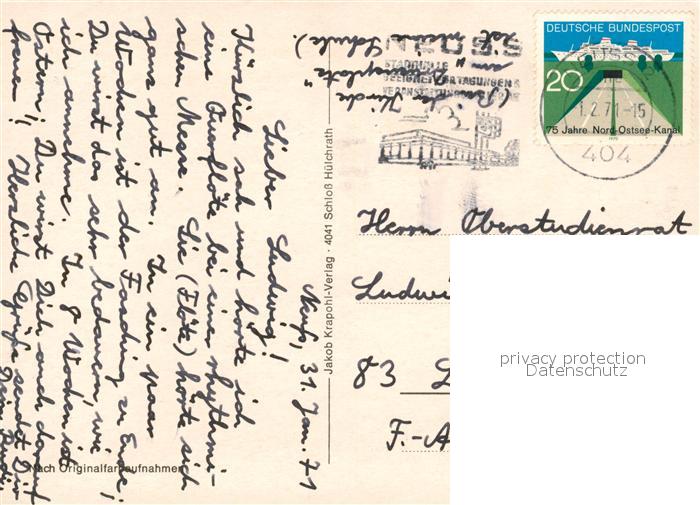 Neuß, 31. Jan. 71
Lieber Ludwig!
Kürzlich sah und hörte ich
eine Querflöte bei einer rhythmi-
schen Messe. Sie (Flöte) hörte sich
ganz gut an. In ein paar
Wochen ist der Fasching zu Ende!
Du wirst das sehr bedauern, wie
ich annehme. In 8 Wochen ist
Ostern! Du wirst Dich auch darauf
freuen! Herzliche Grüße sendet Dir
Dein
(Bei der Kirche
am "
ist meine Schule.)
Jakob Krapohl-Verlag · 4041 Schloß Hülchrath
Nach Originalfarbaufnahmen
STADTHALLE
DEUTSCHE BUNDESPOST
20
75 Jahre Nord-Ostsee-Kanal
1.2.71-15
404
Herrn Oberstudienrat
83
F.-A
privacy protection
Datenschutz